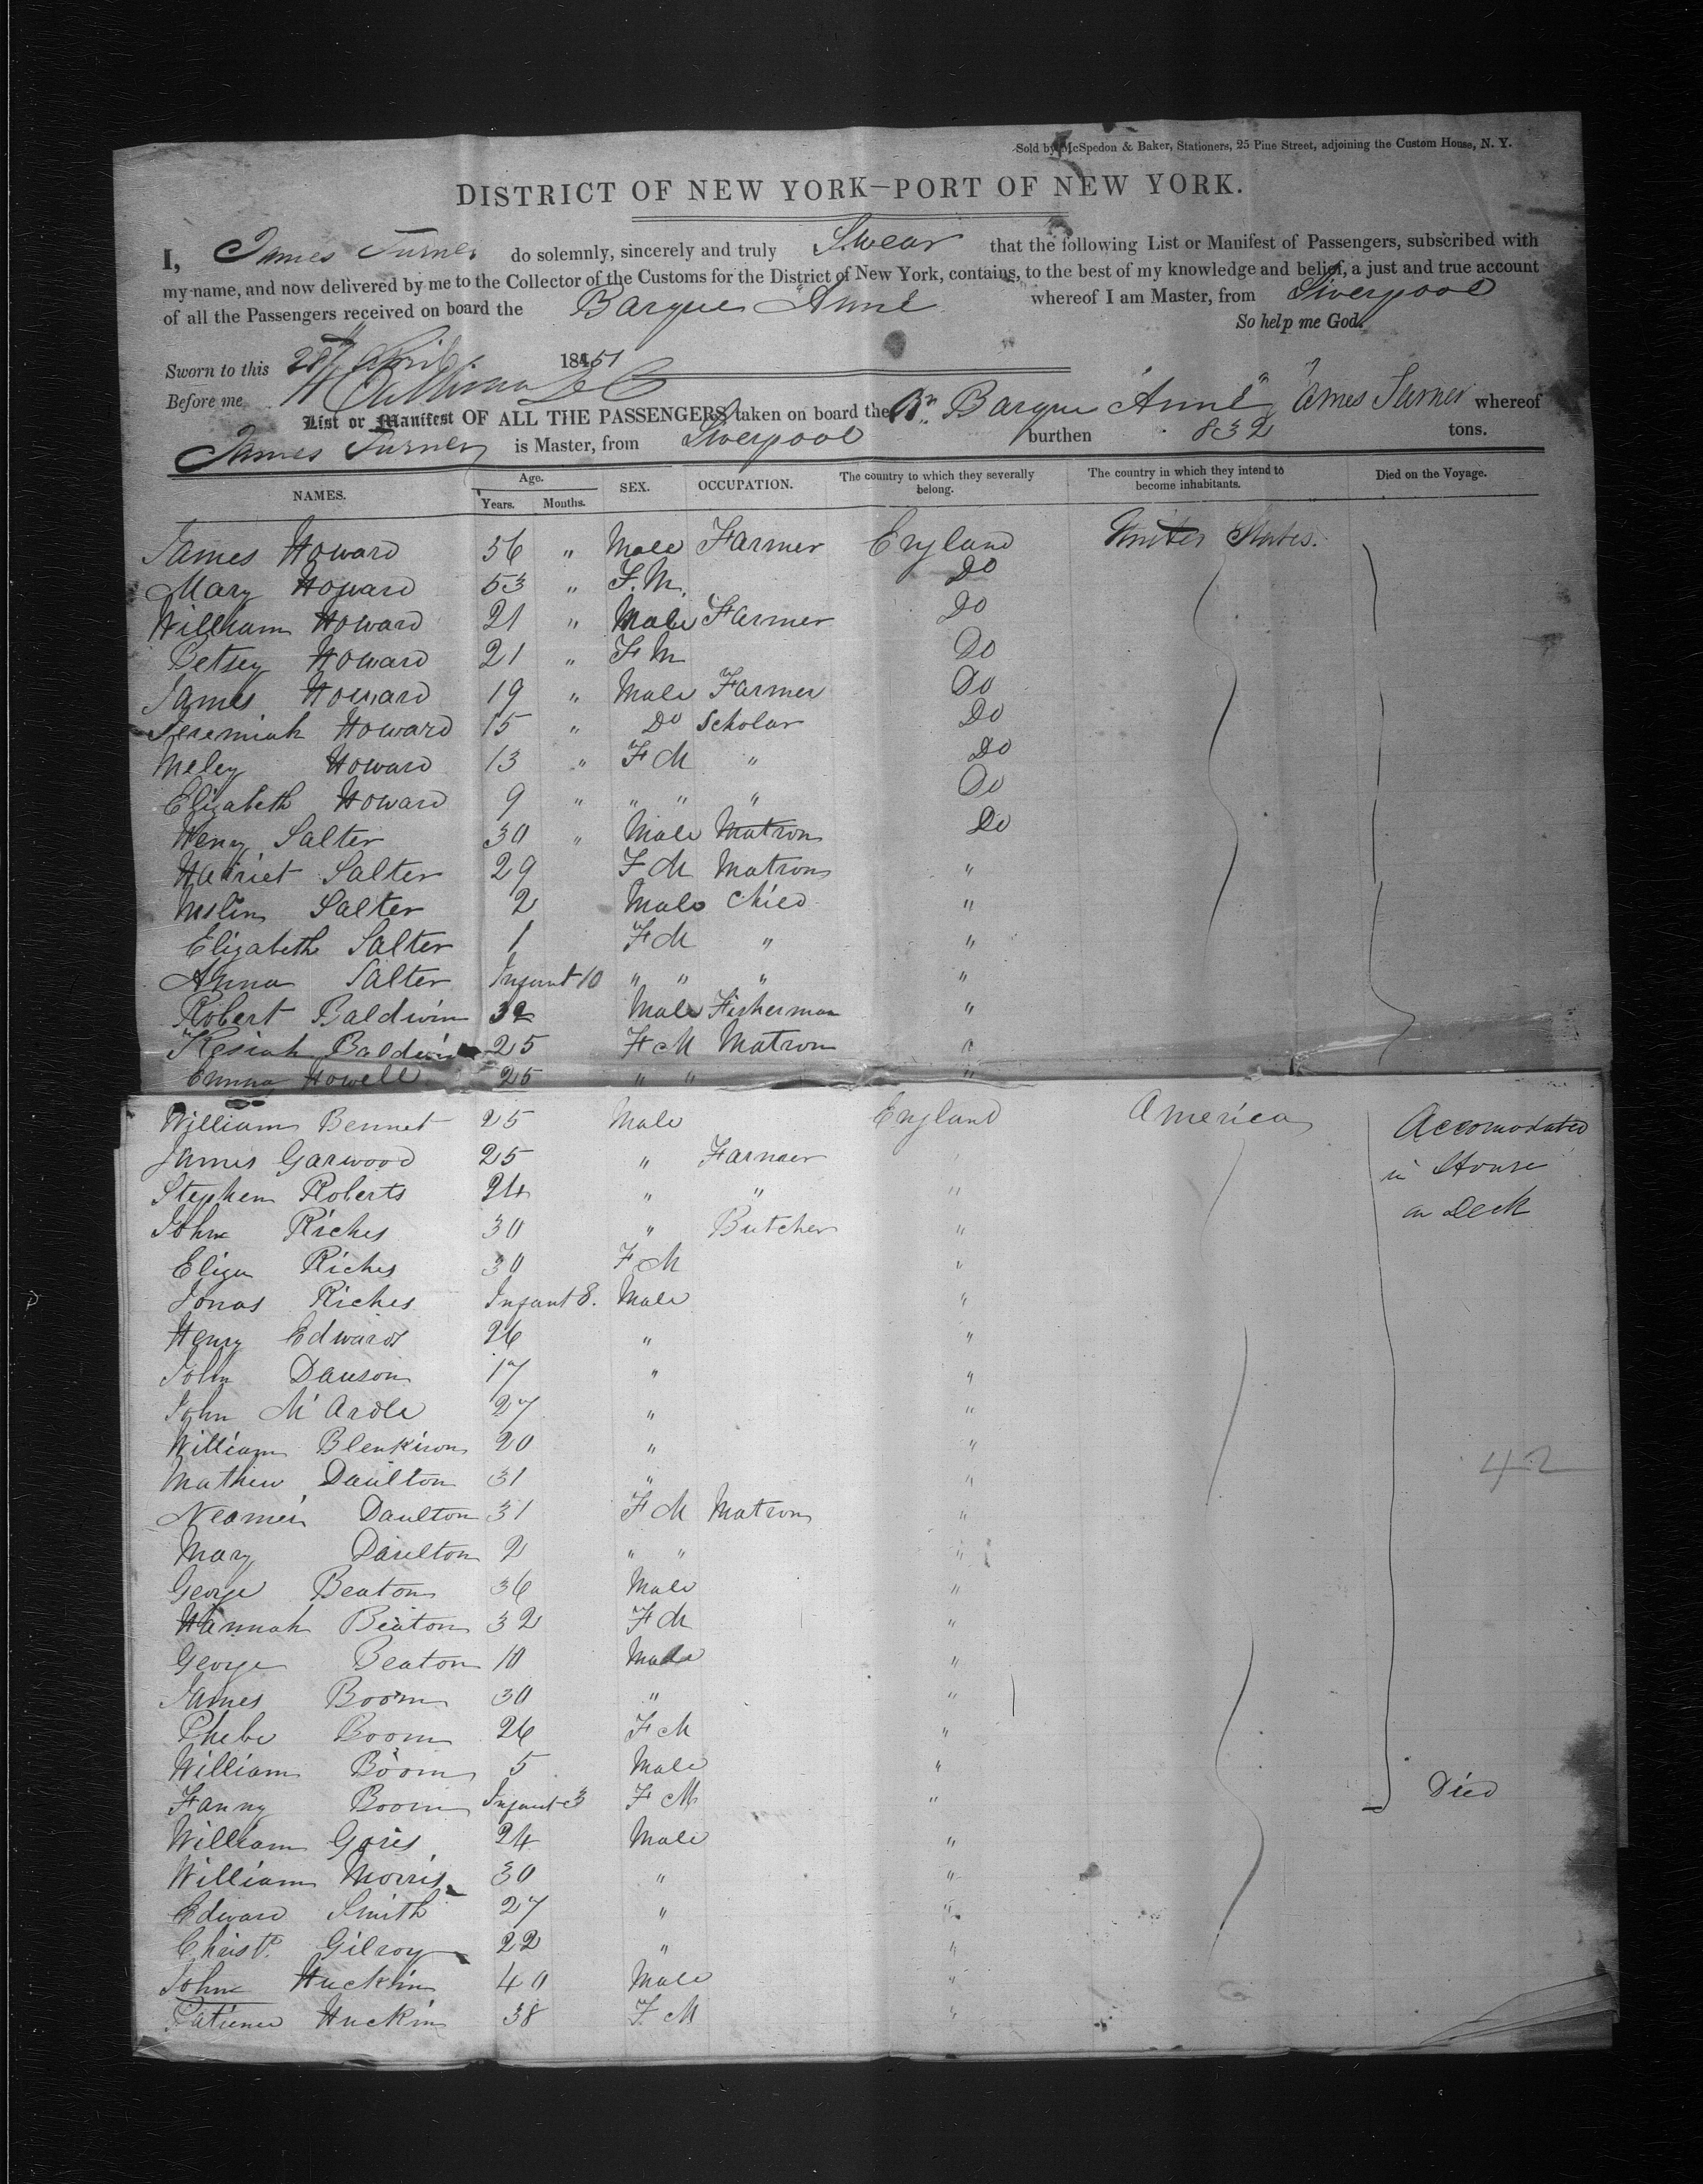 Sold by McSpedon & Baker, Stationers, 25 Pine Street, adjoining the Custom House, N. Y.
DISTRICT OF NEW YORK—PORT OF NEW YORK.
I, James Turner do solemnly, sincerely and truly Swear that the following List or Manifest of Passengers, subscribed with
my name, and now delivered by me to the Collector of the Customs for the District of New York, contains, to the best of my knowledge and belief, a just and true account
of all the Passengers received on board the Barque "Anne" whereof I am Master, from Liverpool
So help me God.
Sworn to this 28th April 1851
Before me
List or Manifest OF ALL THE PASSENGERS taken on board the Br. Barque "Anne" James Turner whereof
James Turner is Master, from Liverpool burthen 832 tons.
NAMES. Age. Years. Months. SEX. OCCUPATION. The country to which they severally belong. The country in which they intend to become inhabitants. Died on the Voyage.
James Howard 56 " Male Farmer England United States.
Mary Howard 53 " F.M. Do
William Howard 21 " Male Farmer Do
Betsey Howard 21 " F M Do
James Howard 19 " Male Farmer Do
Jeremiah Howard 15 " Do Scholar Do
Meley Howard 13 " F M " Do
Elizabeth Howard 9 " " " " Do
Heny Salter 30 " Male Matron Do
Harriet Salter 29 F M Matron "
Salter 2 Male Child "
Elizabeth Salter 1 F M " "
Anna Salter Infant 10 " " " "
Robert Baldwin 32 Male Fisherman "
Kesiah Baldwin 25 F M Matron "
Emma Howell 25 " " "
William Bennet 25 Male England America Accomodated
James Garwood 25 " Farmer " in House
Stephen Roberts 24 " " " on Deck
John Riches 30 " Butcher "
Eliza Riches 30 F M "
Jonas Riches Infant 8. Male "
Henry Edwards 26 " "
John Dawson 17 " "
John McArdle 27 " "
William Blenkiron 20 " "
Mathew Daulton 31 " " 42
Neomei Daulton 31 F M Matron "
Mary Daulton 2 " " "
George Beaton 36 Male "
Hannah Beaton 32 F M "
George Beaton 10 Male "
James Boom 30 " "
Phebe Boom 26 F M "
William Boom 5 Male "
Fanny Boom Infant 3 F M " Died
William Goris 24 Male "
William Morris 30 " "
Edward Smith 27 " "
Christr. Gilroy 22 " "
John Huckin 40 Male "
Patience Huckin 38 F. M "